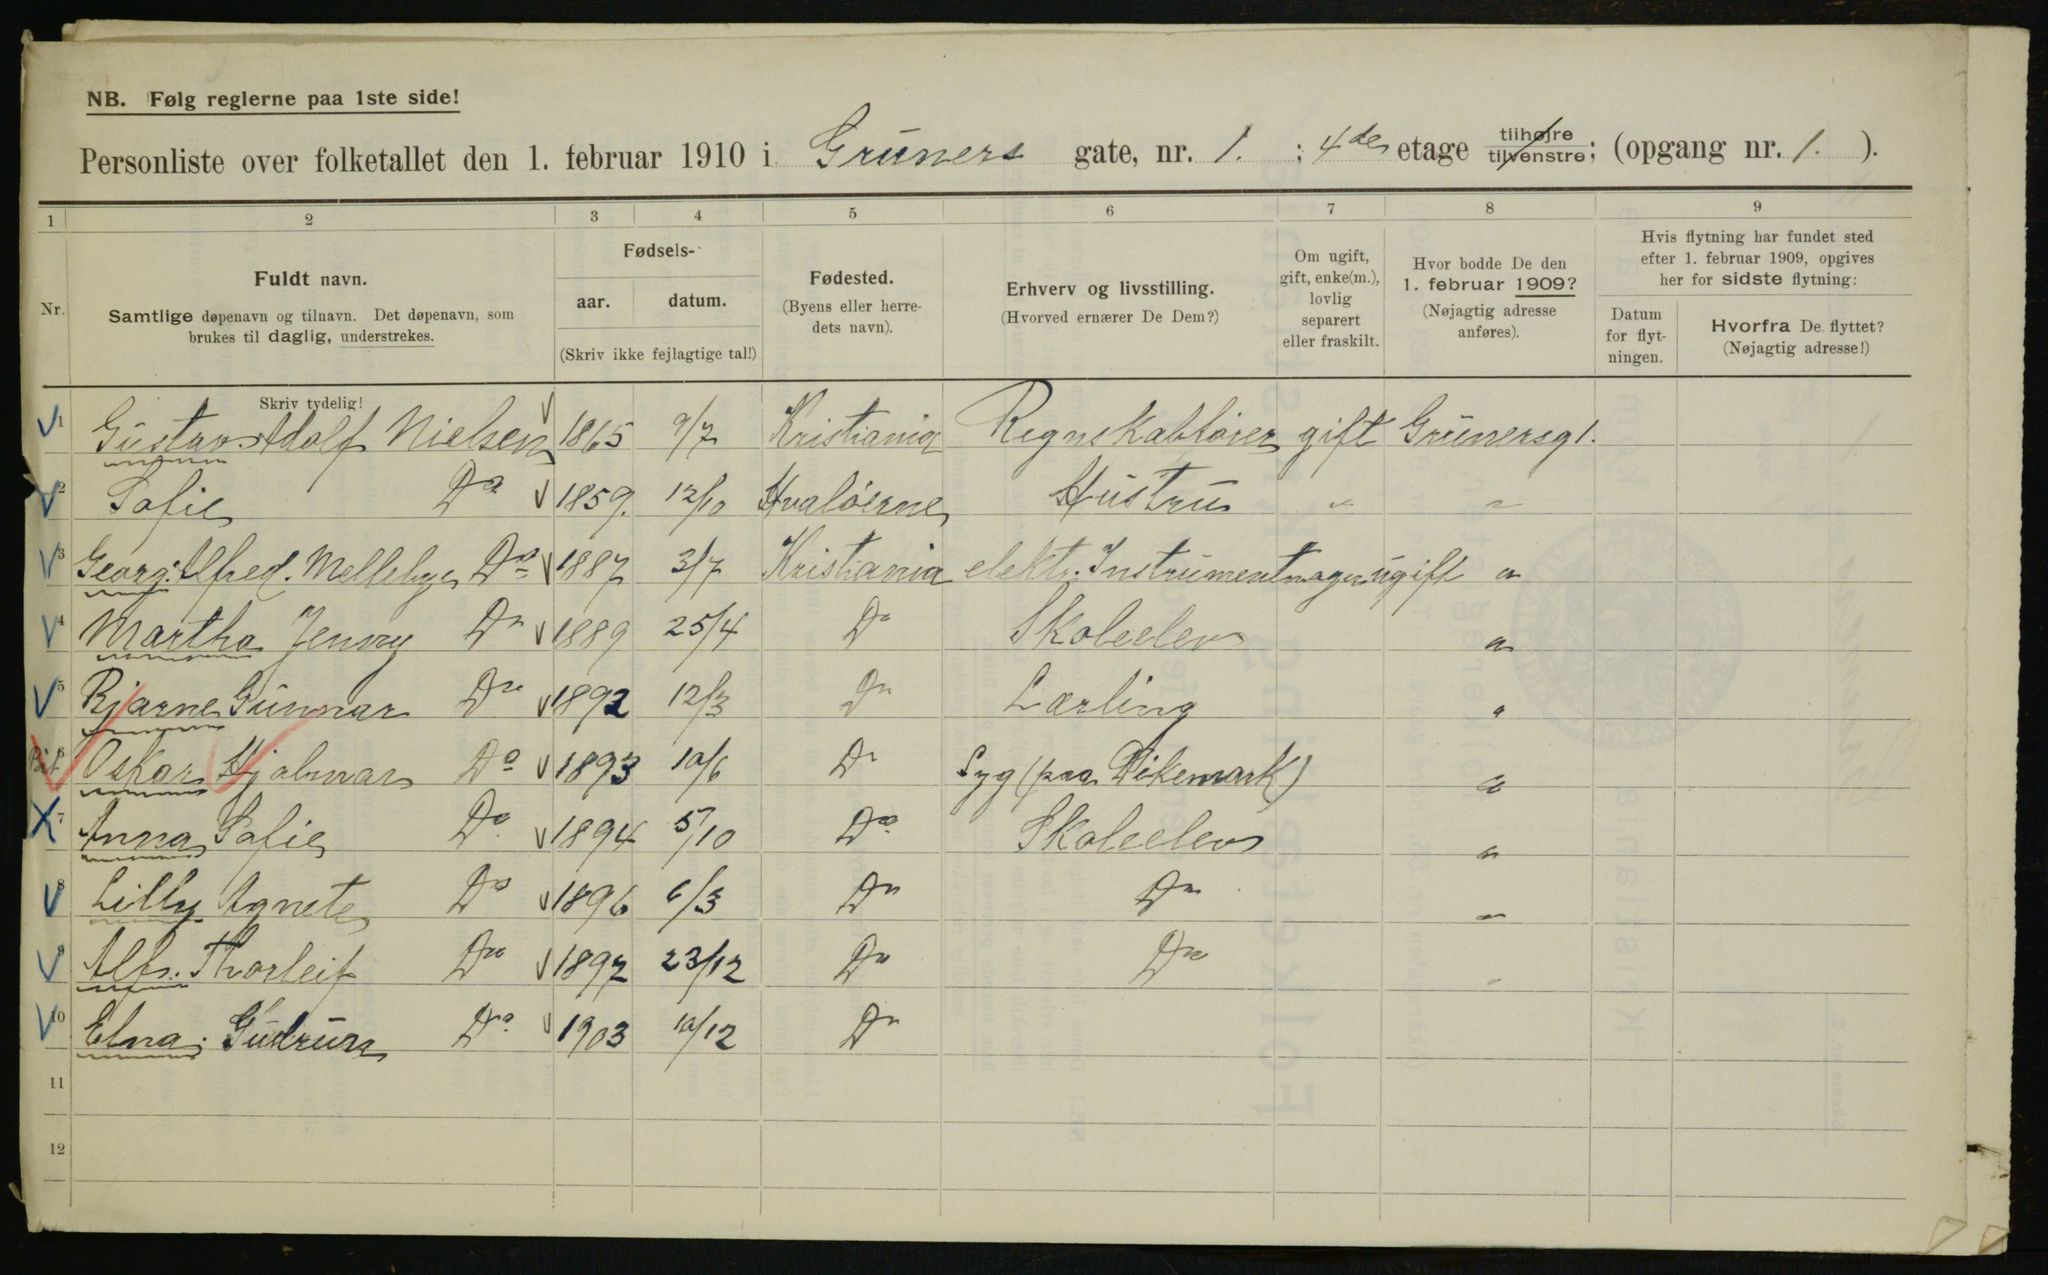 NB. Følg reglerne paa 1ste side!
Personliste over folketallet den 1. februar 1910 i Grüners gate, nr. 1. ; 4de etage tilhøjre tilvenstre; (opgang nr. 1. ).
1 2 3 4 5 6 7 8 9
Nr.
Fuldt navn.
Samtlige døpenavn og tilnavn. Det døpenavn, som
brukes til daglig, understrekes.
Fødsels-
aar. datum.
(Skriv ikke fejlagtige tal!)
Fødested.
(Byens eller herre-
dets navn).
Erhverv og livsstilling.
(Hvorved ernærer De Dem?)
Om ugift,
gift, enke(m.),
lovlig
separert
eller fraskilt.
Hvor bodde De den
1. februar 1909?
(Nøjagtig adresse
anføres).
Hvis flytning har fundet sted
efter 1. februar 1909, opgives
her for sidste flytning:
Datum
for flyt-
ningen.
Hvorfra De flyttet?
(Nøjagtig adresse!)
Skriv tydelig!
1 Gustav Adolf Nielsen 1865 9/7 Kristiania Regnskabfører gift Grünersg 1.
2 Sofie Do 1859. 12/10 Hvaløerne Hustru " "
3 Georg Alfred. Mellebye Do 1887 3/7 Kristiania elektr. Instrumentmager ugift "
4 Martha Jenny Do 1889 25/4 Do Skoleelev "
5 Bjarne Gunnar Do 1892 12/3 Do Lærling "
6 Oskar Hjalmar Do 1893 10/6 Do Syg (paa Dikemark) "
7 Anna Sofie Do 1894 5/10 Do Skoleelev "
8 Lilly Agnete Do 1896 6/3 Do Do "
9 Alf. Thorleif Do 1897 23/12 Do Do "
10 Elna. Gudrun Do 1903 10/12 Do
11
12